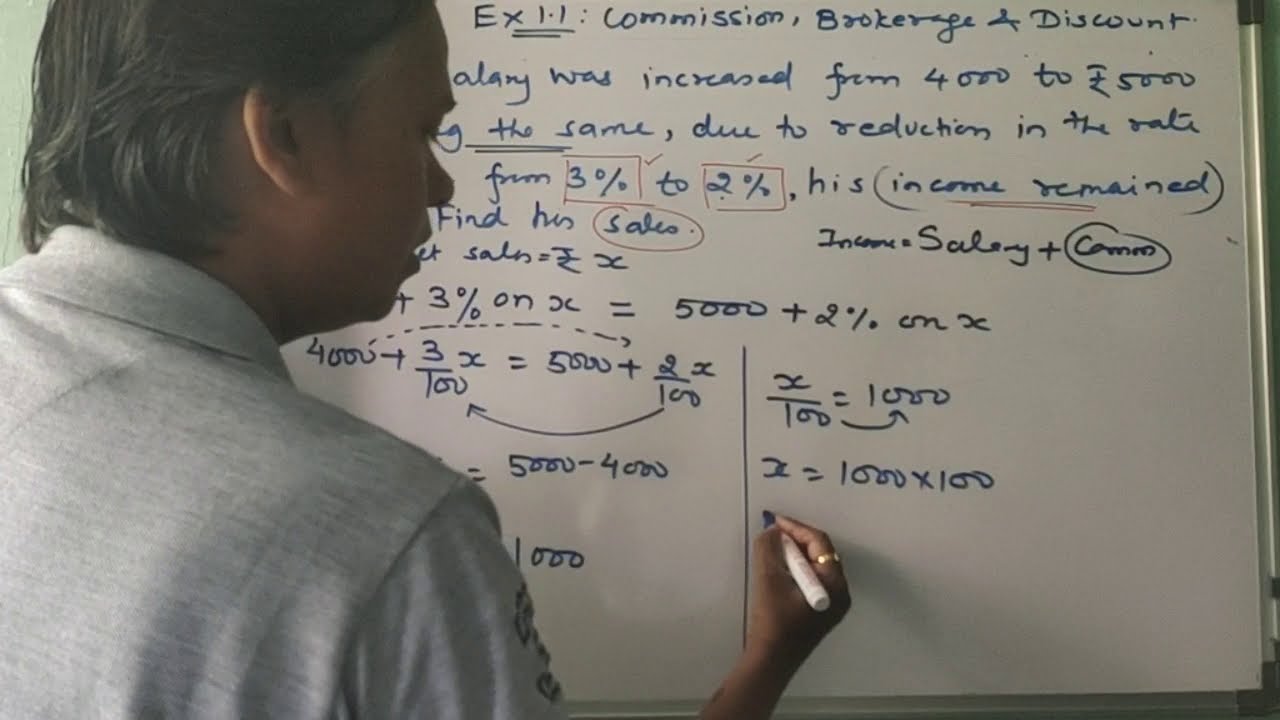 Ex 1.1 : Commission, Brokerage & Discount.
alary was increased from 4000 to ₹5000
g the same, due to reduction in the rate
from 3% to 2%, his (income remained)
Find his sales.
Income = Salary + Comm
et sales = ₹ x
+ 3% on x = 5000 + 2% on x
4000 + 3/100 x = 5000 + 2/100 x
= 5000 - 4000
1000
x/100 = 1000
x = 1000 × 100